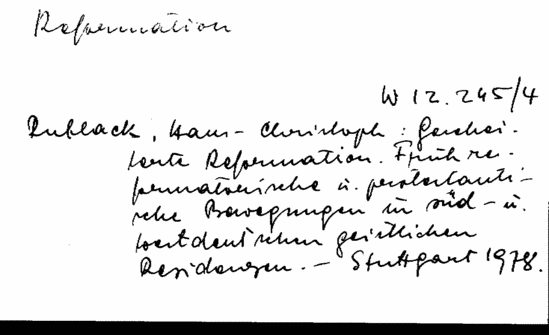 Reformation
W 12.245/4
Rublack, Hans-Christoph: Geschei-
terte Reformation. Frühre-
formatorische u. protestanti-
sche Bewegungen in süd- u.
westdeutschen geistlichen
Residenzen. – Stuttgart 1978.